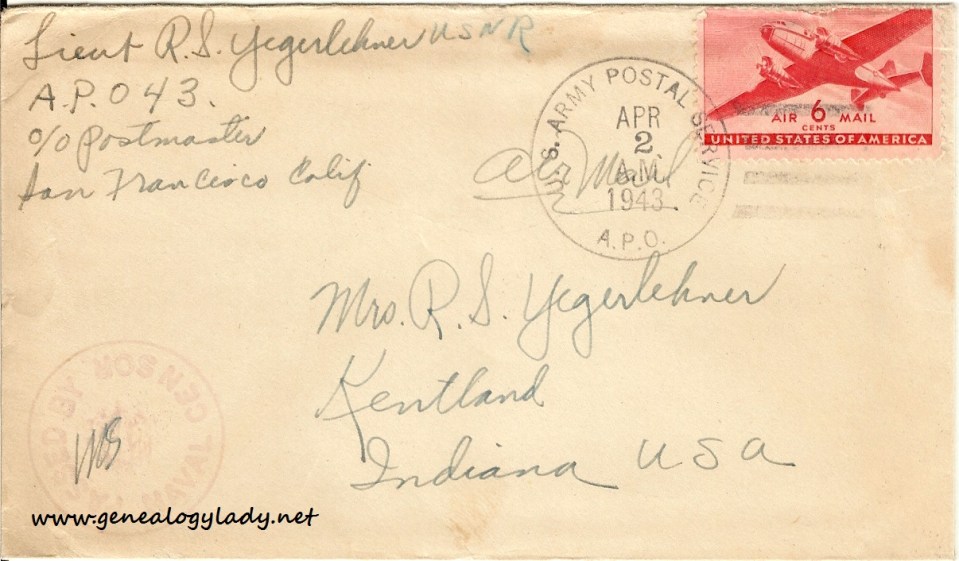 Lieut R.S. Yegerlehner USNR
A.P.O 43.
c/o Postmaster
San Francisco Calif
U.S. ARMY POSTAL SERVICE
APR
2
A.M.
1943
A.P.O.
Air Mail
AIR 6 MAIL
CENTS
UNITED STATES OF AMERICA
Mrs. R. S. Yegerlehner
Kentland
Indiana USA
PASSED BY NAVAL CENSOR
www.genealogylady.net